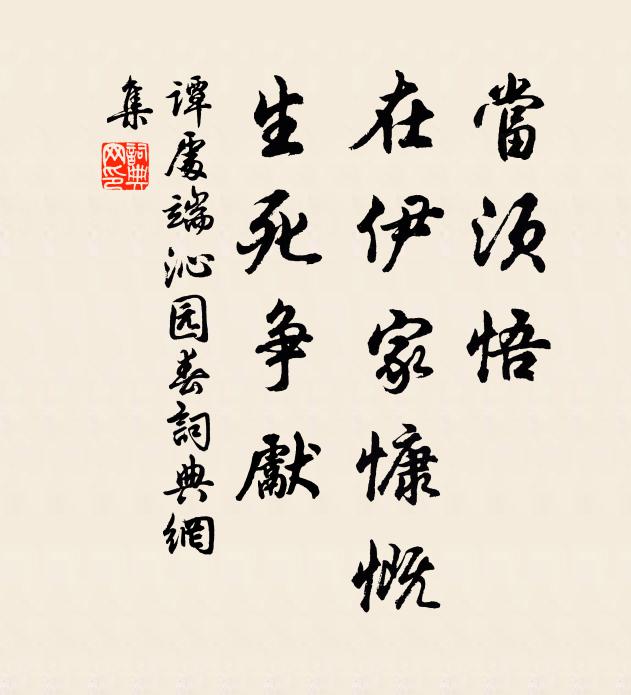 當須悟
在伊家慷慨
生死争獻
譚處端沁园春詞典網
集
詞典网印